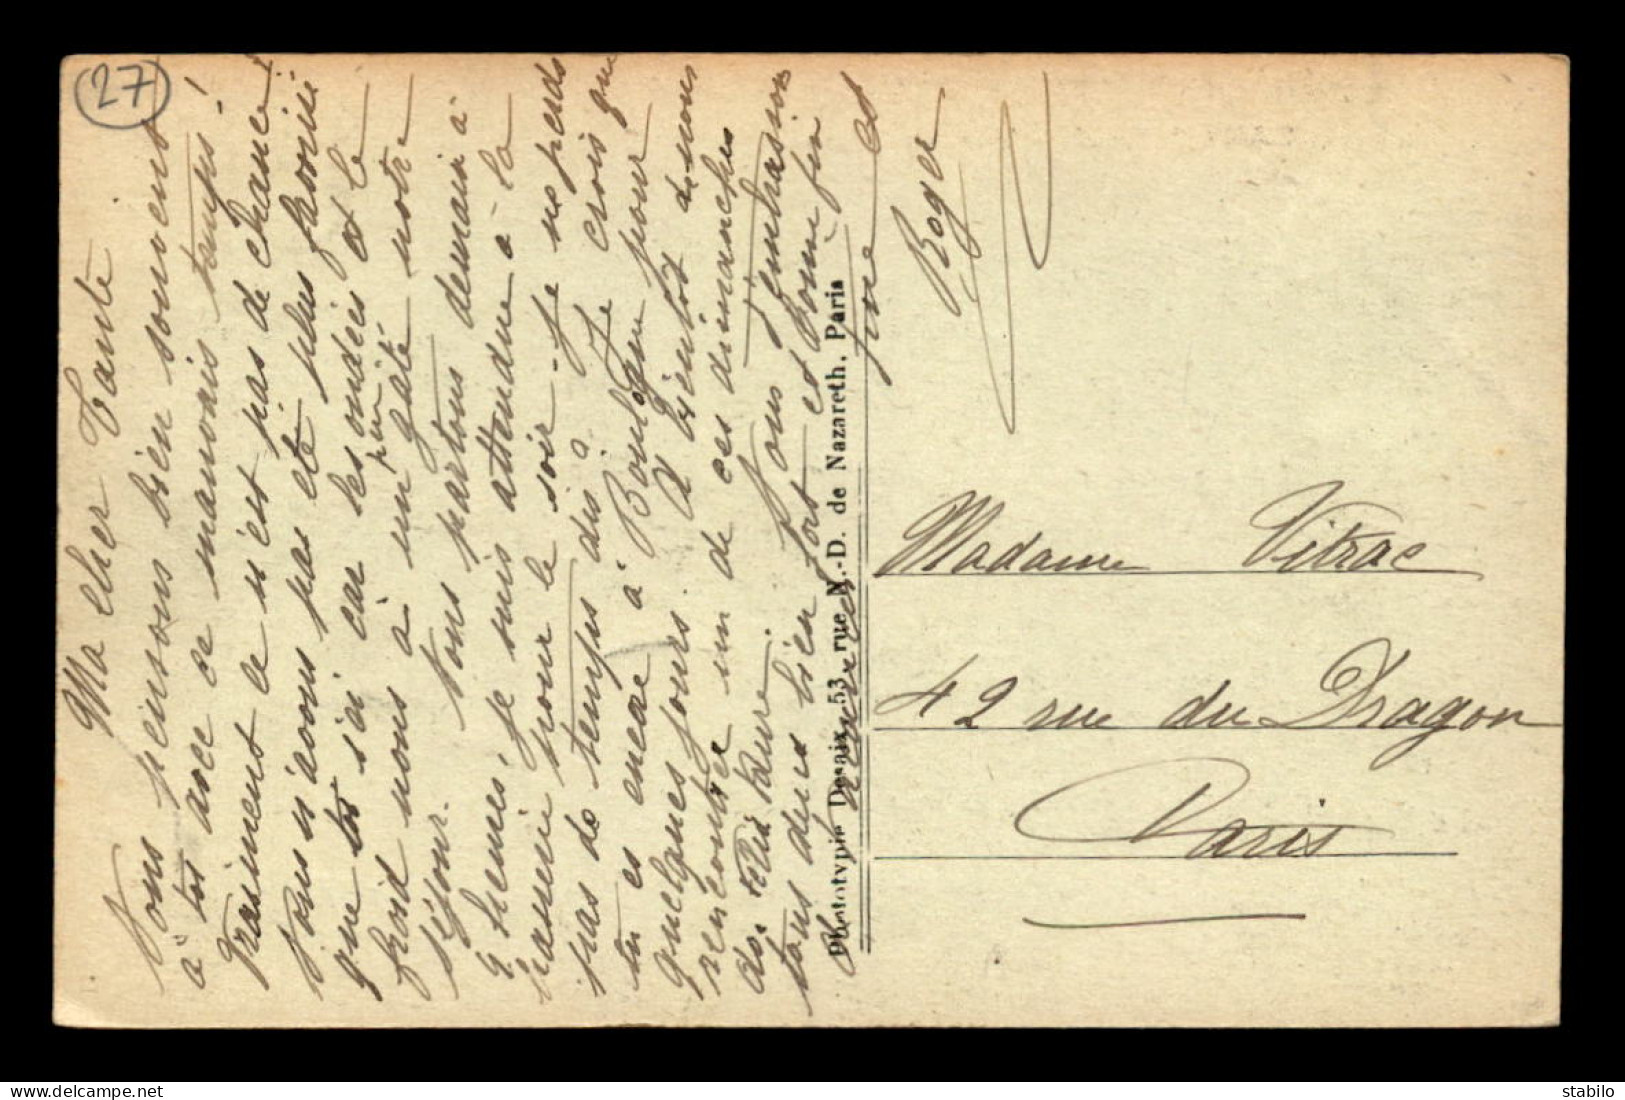 27
Ma cher Tante
Nous pensons bien souvent
à toi avec ce mauvais temps !
Vraiment ce n'est pas de chance !
Nous n'avons pas été plus favorisé
que toi ici car les ondées et le
froid nous a un peu gâté notre
séjour.
Nous partons demain à
9 heures, je suis attendue à la
pour le soir. Je ne perds
pas de temps dis ? Je crois que
tu es encore à Boulogne pour
quelques jours. A bientôt donc
rencontre un de ces dimanches
Nous t'embrassons
tous deux bien fort et
et
Roger
Phototypie Desaix, 53, rue N.-D. de Nazareth, Paris
Madame Vitrac
42 rue du Dragon
Paris
stabilo
delcampe.net